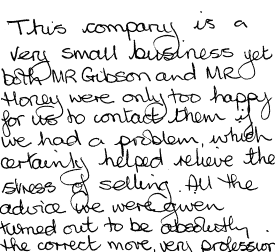 This company is a
very small business yet
both MR Gibson and MR
Honey were only too happy
for us to contact them if
we had a problem which
certainly helped relieve the
stress of selling. All the
advice we were given
turned out to be absolutly
the correct move, very profession